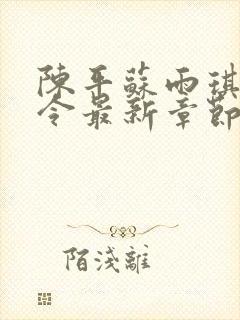 陳平蘇雨琪
令最新章節
陌淺離